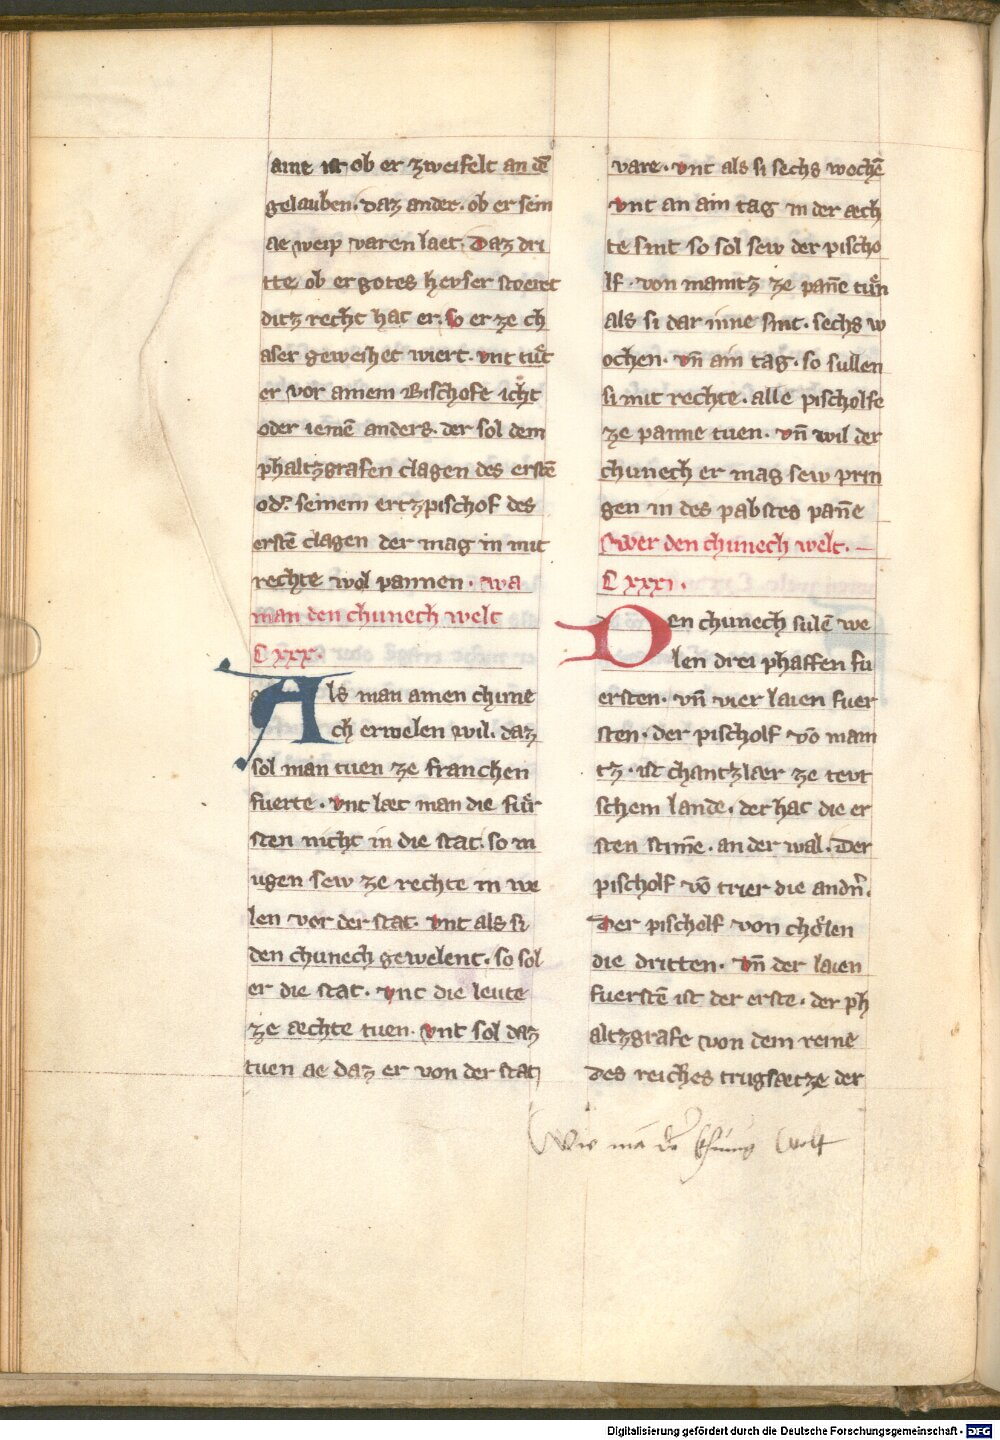 aine ist ob er zweifelt an dē
gelauben. daz ander. ob er sein
ae weip varen laet. Daz dri
tte ob er gotes hevser stoeret
ditz recht hat er. so er ze ch
aser geweihet wiert. vnt tuͤt
er vor ainem Bischofe icht
oder iemē anders. der sol dem
phaltzgrafen clagen des erstē
od᷒ seinem ertzpischof des
erstē clagen der mag in mit
rechte wol pannen. wa
man den chunech welt
C xxx.
Als man ainen chune
ch erwelen wil. daz
sol man tuen ze franchen
fuerte. vnt laet man die fuͤr
sten nicht in die stat. so m
ugen sew ze rechte in we
len vor der stat. vnt als si
den chunech gewelent. so sol
er die stat. vnt die leute
ze aechte tuen. vnt sol daz
tuen ae daz er von der stat
vare. vnt als si sechs wochē
vnt an ain tag in der aech
te sint so sol sew der pischo
lf. von maintz ze pan̄e tuͤn
als si dar inne sint. sechs w
ochen. vn̄ ain tag. so sullen
si mit rechte. alle pischolfe
ze panne tuen. vn̄ wil der
chunech er mag sew prin
gen in des pabstes pan̄e
Swer den chunech welt.
C xxxi.
Den chunech sulē we
len drei phaffen fu
ersten. vn̄ vier laien fuer
sten. der pischolf vō main
tz. ist chantzlaer ze tevt
schem lande. der hat die er
sten stim̄e. an der wal. Der
pischolf vō trier die andn̄.
Der pischolf von choͤlen
die dritten. Vn̄ der laien
fuerstē ist der erste. der ph
altzgrafe von dem reine
des reiches trugsaetze der
Wie mā dē khunig welt
Digitalisierung gefördert durch die Deutsche Forschungsgemeinschaft - DFG